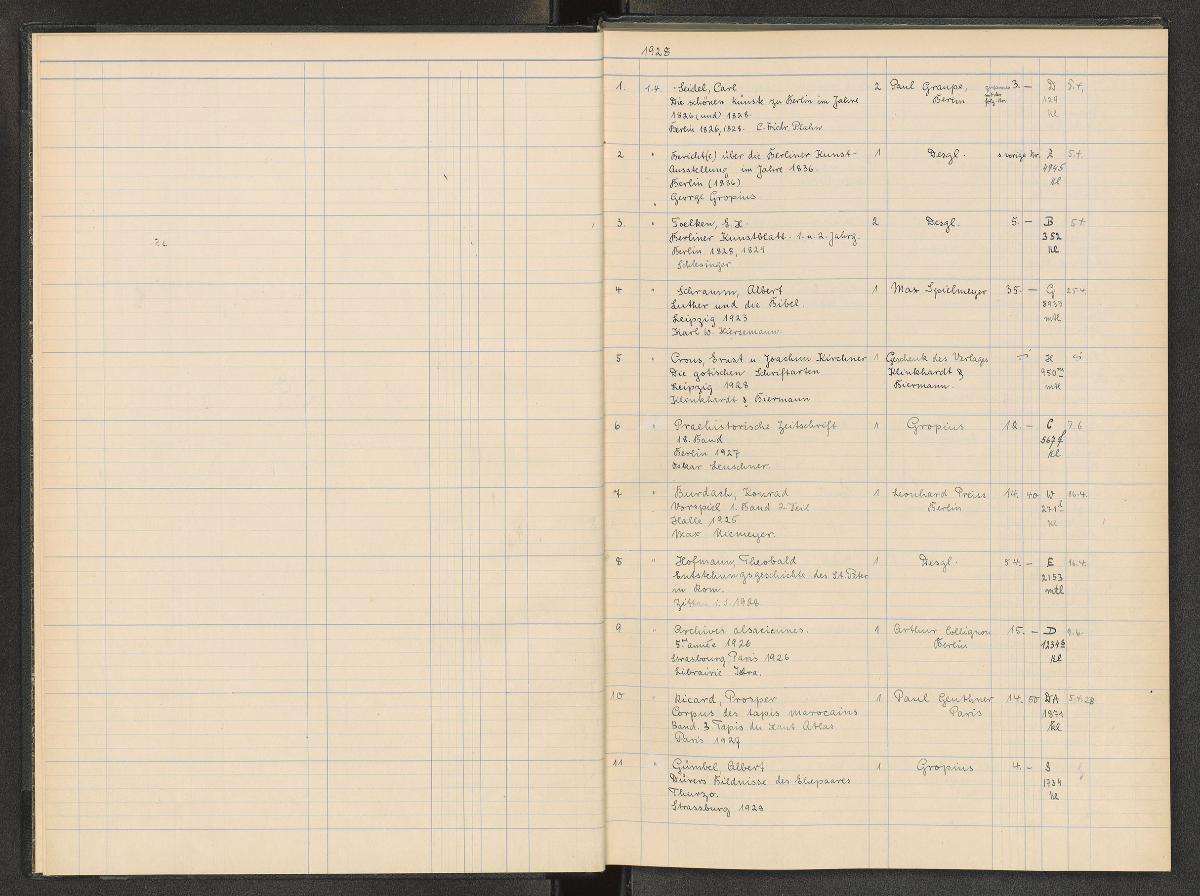 1928
1. 1.4. Seidel, Carl 2 Paul Graupe, 3. – D 5.4.
Die schönen Künste zu Berlin im Jahre Berlin 129
1826 (und) 1828. kl
Berlin 1826, 1828. C. Fridr. Plahn
2 " Bericht(e) über die Berliner Kunst- 1 Desgl. s. vorige Nr. Z 5.4.
Ausstellung im Jahre 1836. 4945
Berlin (1836) kl
George Gropius
3. " Toelken, E. H. 2 Desgl. 5. – B 5.4.
Berliner Kunstblatt. 1. u. 2. Jahrg. 352
Berlin 1828, 1829 kl
Schlesinger
4 " Schramm, Albert 1 Max Spielmeyer 35. – G 25.4.
Luther und die Bibel. 8933
Leipzig 1923 mtl
Karl W. Hiersemann.
5 " Crous, Ernst u. Joachim Kirchner 1 Geschenk des Verlages H
Die gotischen Schriftarten Klinkhardt & 950
Leipzig 1928 Biermann. mtl
Klinkhardt & Biermann
6 " Praehistorische Zeitschrift 1 Gropius 18. – C 7.6
18. Band 567
Berlin 1927 kl
Oskar Leuschner.
7 " Burdach, Konrad 1 Leonhard Preiss 14. 40 W 16.4.
Vorspiel 1. Band 2. Teil Berlin 271
Halle 1925 kl
Max Niemeyer.
8 " Hofmann, Theobald 1 Desgl. 54. – E 16.4.
Entstehungsgeschichte des St. Peter 2153
in Rom. mtl
Zittau i. S. 1928
9 " Archives alsaciennes. 1 Arthur Collignon 15. – D 9.6.
5me année 1926 Berlin 1234
Strasbourg, Paris 1926 kl
Librairie Istra.
10 " Ricard, Prosper 1 Paul Geuthner 14. 50 DA 5.4.28
Corpus des tapis marocains Paris 1871
Band. 3 Tapis du Haut Atlas kl
Paris 1927
11 " Gümbel, Albert 1 Gropius 4. – S
Dürers Bildnisse des Ehepaares 1734
Thurzo. kl
Strassburg 1928